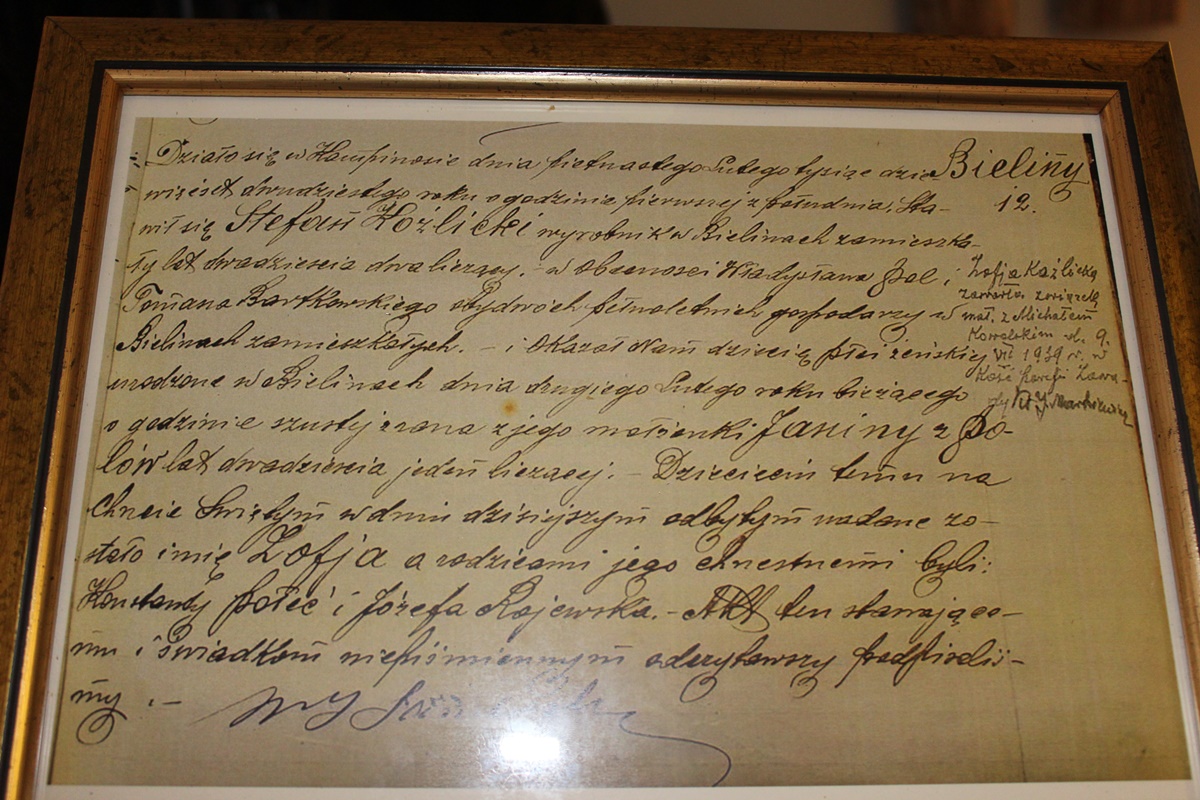 Działo się w Kampinosie dnia piętnastego Lutego tysiąc dzie
więćset dwudziestego roku o godzinie pierwszej z południa. Sta-
wił się Stefan Koźlicki wyrobnik w Bielinach zamieszka-
ły lat dwadzieścia dwa liczący. - w obecności Władysława Pol i
Romana Bartkowskiego obydwóch pełnoletnich gospodarzy w
Bielinach zamieszkałych. - i okazał Nam dziecię płci żeńskiej
urodzone w Bielinach dnia drugiego Lutego roku bieżącego
o godzinie szóstej z rana z jego małżonki Janiny z Po-
lów lat dwadzieścia jeden liczącej. - Dziecięciu temu na
Chrcie Świętym w dniu dzisiejszym odbytym nadane zo-
stało imię Zofja a rodzicami jego chrestnemi byli:
Konstanty Połeć i Józefa Rajewska. - Akt ten stawające-
mu i świadkom niepiśmiennym odczytawszy podpisaliś-
my. -
Bieliny
12.
Zofja Koźlicka
zawarła związek
mał. z Michałem
Kowalskim d. 9.
VII 1939 r. w
Kość. parafi Zawa-
dy